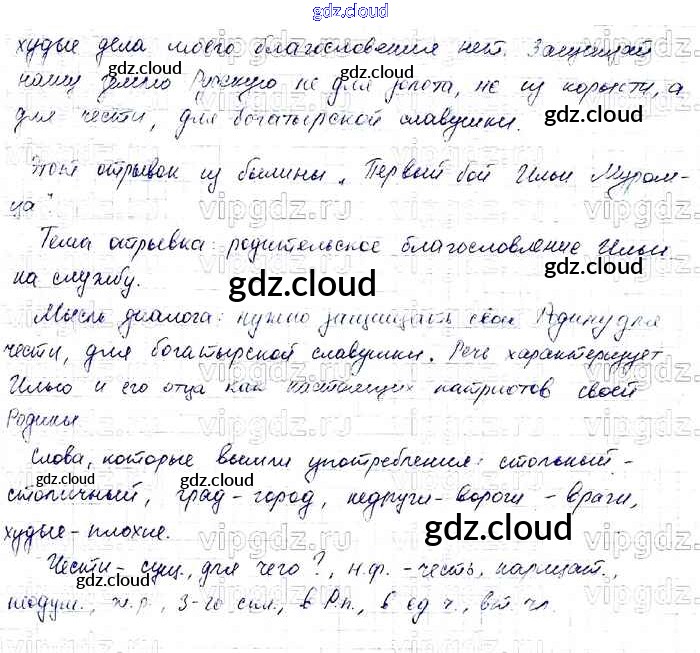 gdz.cloud
худые дела моего благословения нет. Защищай
нашу землю Русскую не для золота, не из корысти, а
для чести, для богатырской славушки.
Этот отрывок из былины „Первый бой Ильи Муром-
ца"
Тема отрывка: родительское благословление Ильи
на службу.
Мысль диалога: нужно защищать свою Родину для
чести, для богатырской славушки. Речь характеризует
Илью и его отца как настоящих патриотов своей
Родины
Слова, которые вышли употребления: стольный -
столичный, град - город, недруги - вороги - враги,
худые - плохие.
Чести - сущ., для чего?, н.ф. - честь, нарицат.,
неодуш., ж.р., 3-го скл., в Р.п., в ед.ч., вт. чл.